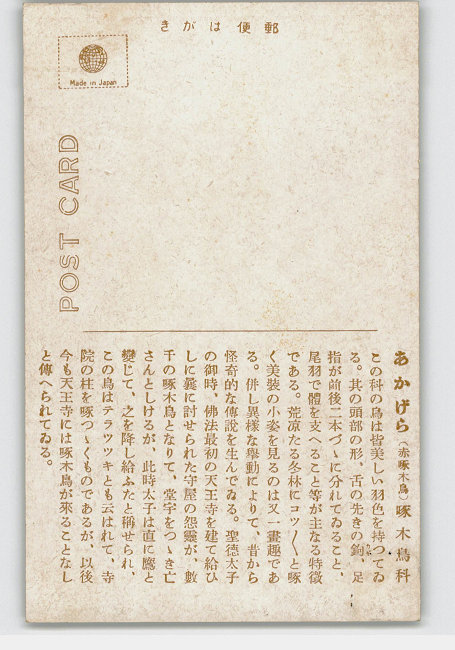 郵便はがき
Made in Japan
POST CARD
あかげら(赤啄木鳥)啄木鳥科
この科の鳥は皆美しい羽色を持つてゐ
る。其の頭部の形、舌の先きの鉤、足
指が前後二本づゝに分れてゐること、
尾羽で體を支へること等が主なる特徴
である。荒凉たる冬林にコツ〳〵と啄
く美裝の小姿を見るのは又一畫趣であ
る。併し異樣な擧動によりて、昔から
怪奇的な傳說を生んでゐる。聖德太子
の御時、佛法最初の天王寺を建て給ひ
しに義に討せられた守屋の怨靈が、數
千の啄木鳥となりて、堂宇をつゝき亡
さんとしけるが、此時太子は直に鷹と
變じて、之を降し給ふたと稱せられ、
この鳥はテラツツキとも云はれて、寺
院の柱を啄つゝくものであるが、以後
今も天王寺には啄木鳥が來ることなし
と傳へられてゐる。